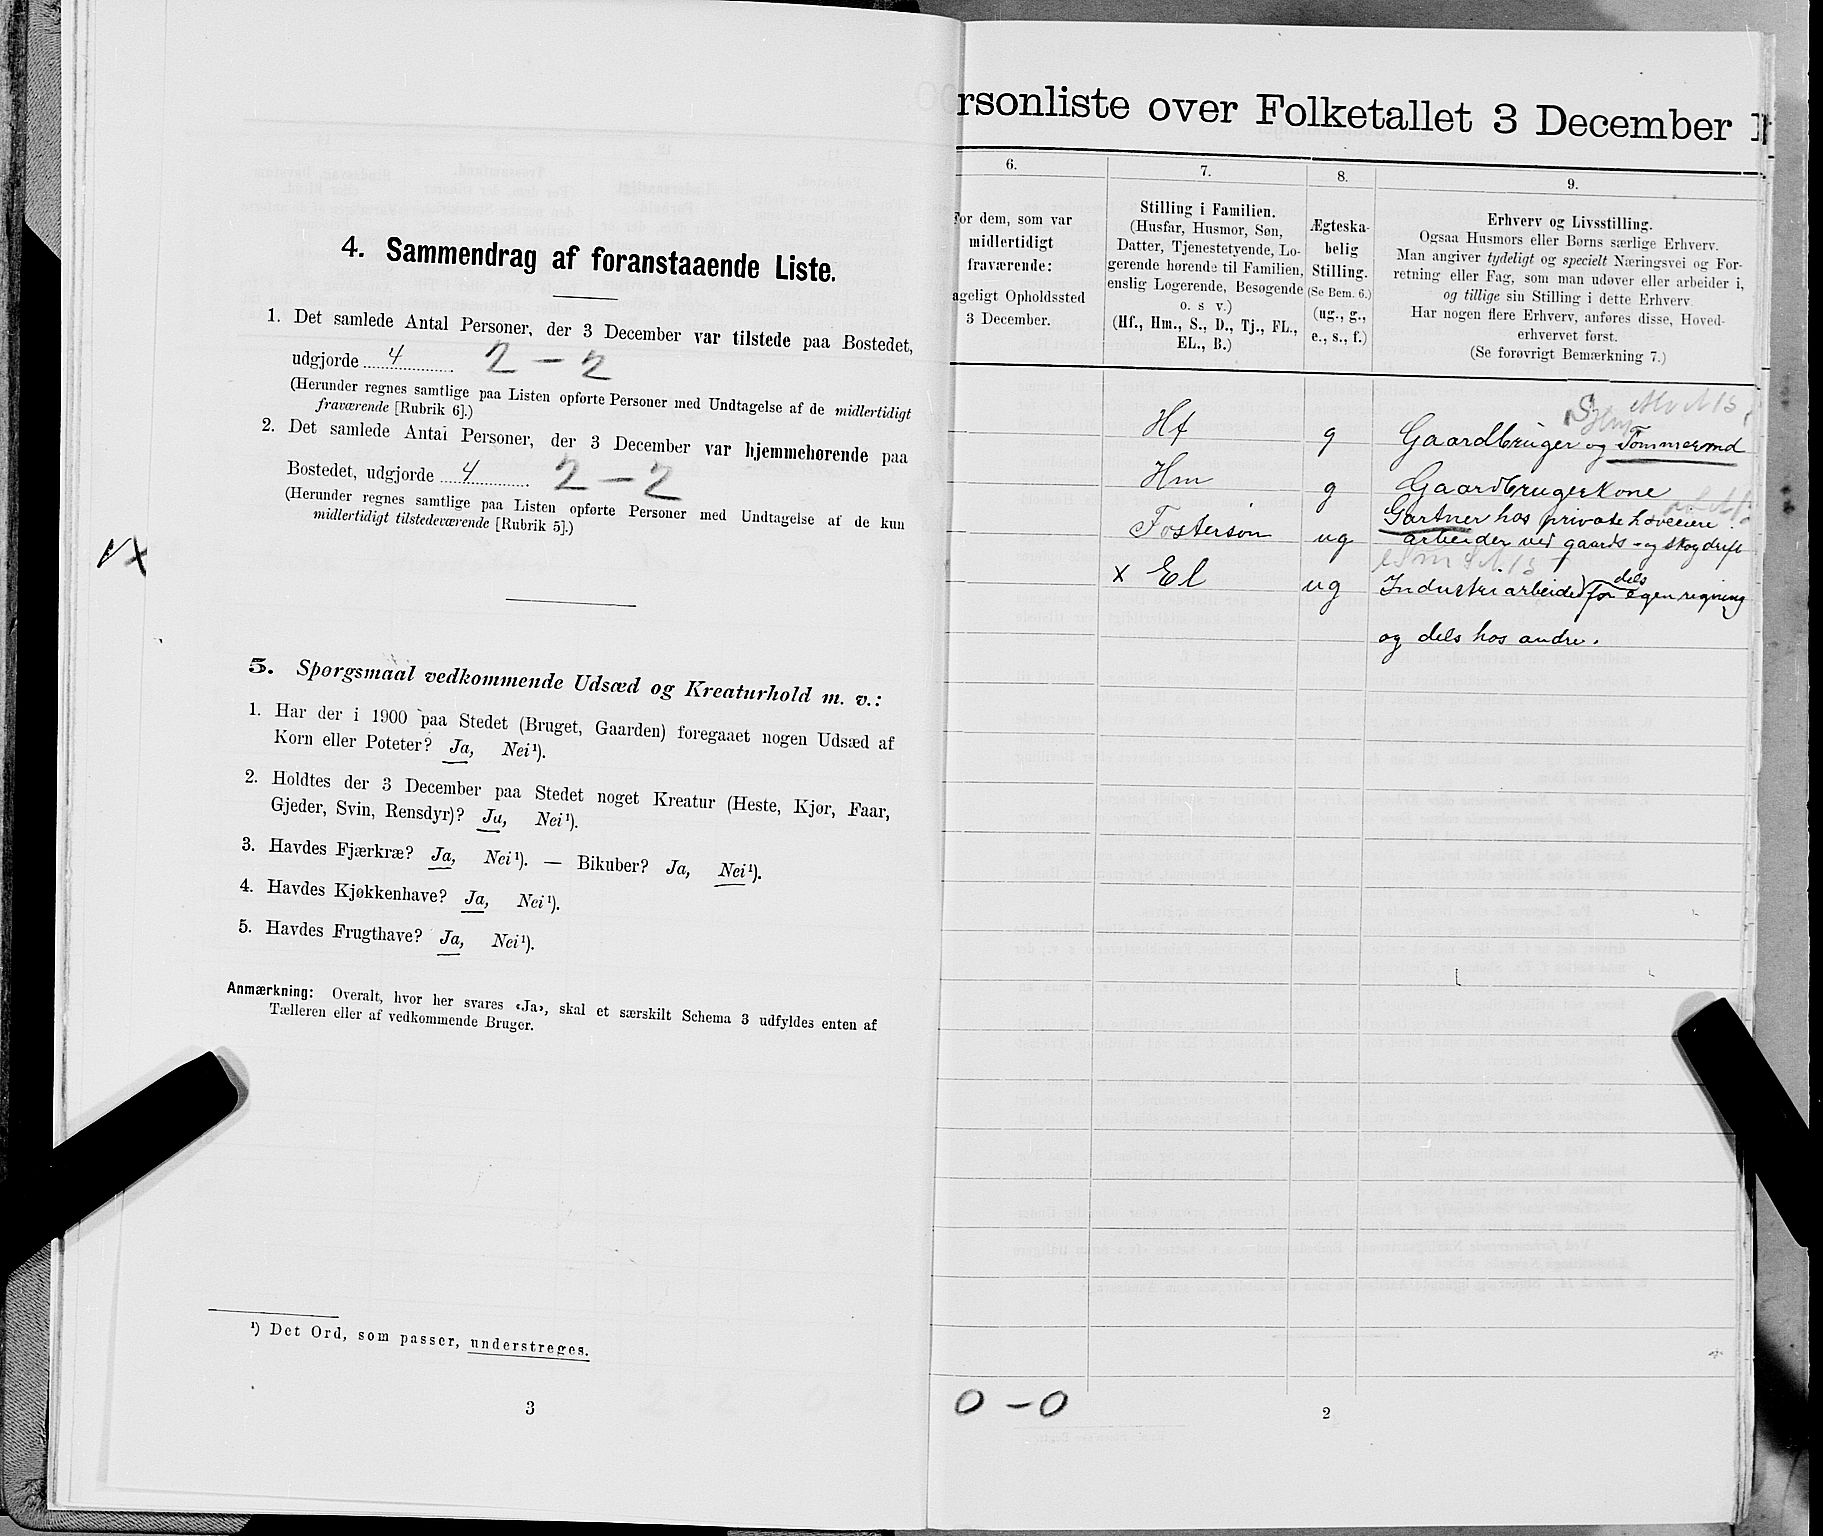 4. Sammendrag af foranstaaende Liste.
1. Det samlede Antal Personer, der 3 December var tilstede paa Bostedet,
udgjorde 4 2 – 2
(Herunder regnes samtlige paa Listen opførte Personer med Undtagelse af de midlertidigt
fraværende [Rubrik 6].)
2. Det samlede Antal Personer, der 3 December var hjemmehørende paa
Bostedet, udgjorde 4 2 – 2
(Herunder regnes samtlige paa Listen opførte Personer med Undtagelse af de kun
midlertidigt tilstedeværende [Rubrik 5].)
5. Spørgsmaal vedkommende Udsæd og Kreaturhold m. v.:
1. Har der i 1900 paa Stedet (Bruget, Gaarden) foregaaet nogen Udsæd af
Korn eller Poteter? Ja, Nei¹).
2. Holdtes der 3 December paa Stedet noget Kreatur (Heste, Kjør, Faar,
Gjeder, Svin, Rensdyr)? Ja, Nei¹).
3. Havdes Fjærkræ? Ja, Nei¹). — Bikuber? Ja, Nei¹).
4. Havdes Kjøkkenhave? Ja, Nei¹).
5. Havdes Frugthave? Ja, Nei¹).
Anmærkning: Overalt, hvor her svares «Ja», skal et særskilt Schema 3 udfyldes enten af
Tælleren eller af vedkommende Bruger.
¹) Det Ord, som passer, understreges.
3
rsonliste over Folketallet 3 December
6.
for dem, som var
midlertidigt
fraværende:
ageligt Opholdssted
3 December.
7.
Stilling i Familien.
(Husfar, Husmor, Søn,
Datter, Tjenestetyende, Lo-
gerende hørende til Familien,
enslig Logerende, Besøgende
o. s v.)
(Hf., Hm., S., D., Tj., FL.,
EL., B.)
8.
Ægteska-
belig
Stilling.
(Se Bem. 6.)
(ug., g.,
e., s., f.)
9.
Erhverv og Livsstilling.
Ogsaa Husmors eller Børns særlige Erhverv.
Man angiver tydeligt og specielt Næringsvei og For-
retning eller Fag, som man udøver eller arbeider i,
og tillige sin Stilling i dette Erhverv.
Har nogen flere Erhverv, anføres disse, Hoved-
erhvervet først.
(Se forøvrigt Bemærkning 7.)
Hf g Gaardbruger og Tømmermd
Hm g Gaardbrugerkone
Fostersøn ug Gartner hos private haveeiere.
arbeider ved gaards- og skogdrift
x El ug Industriarbeider dels for egen regning
og dels hos andre.
0 – 0
2